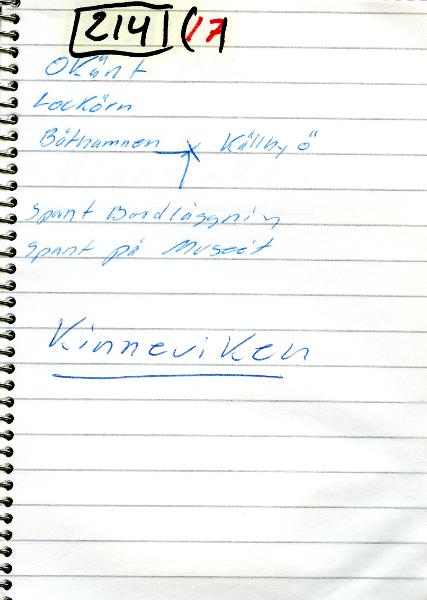 214 (17
Okänt
Lockörn
Båthamnen x Källby ö
Spant Bordläggnin
Spant på Museet
Kinneviken